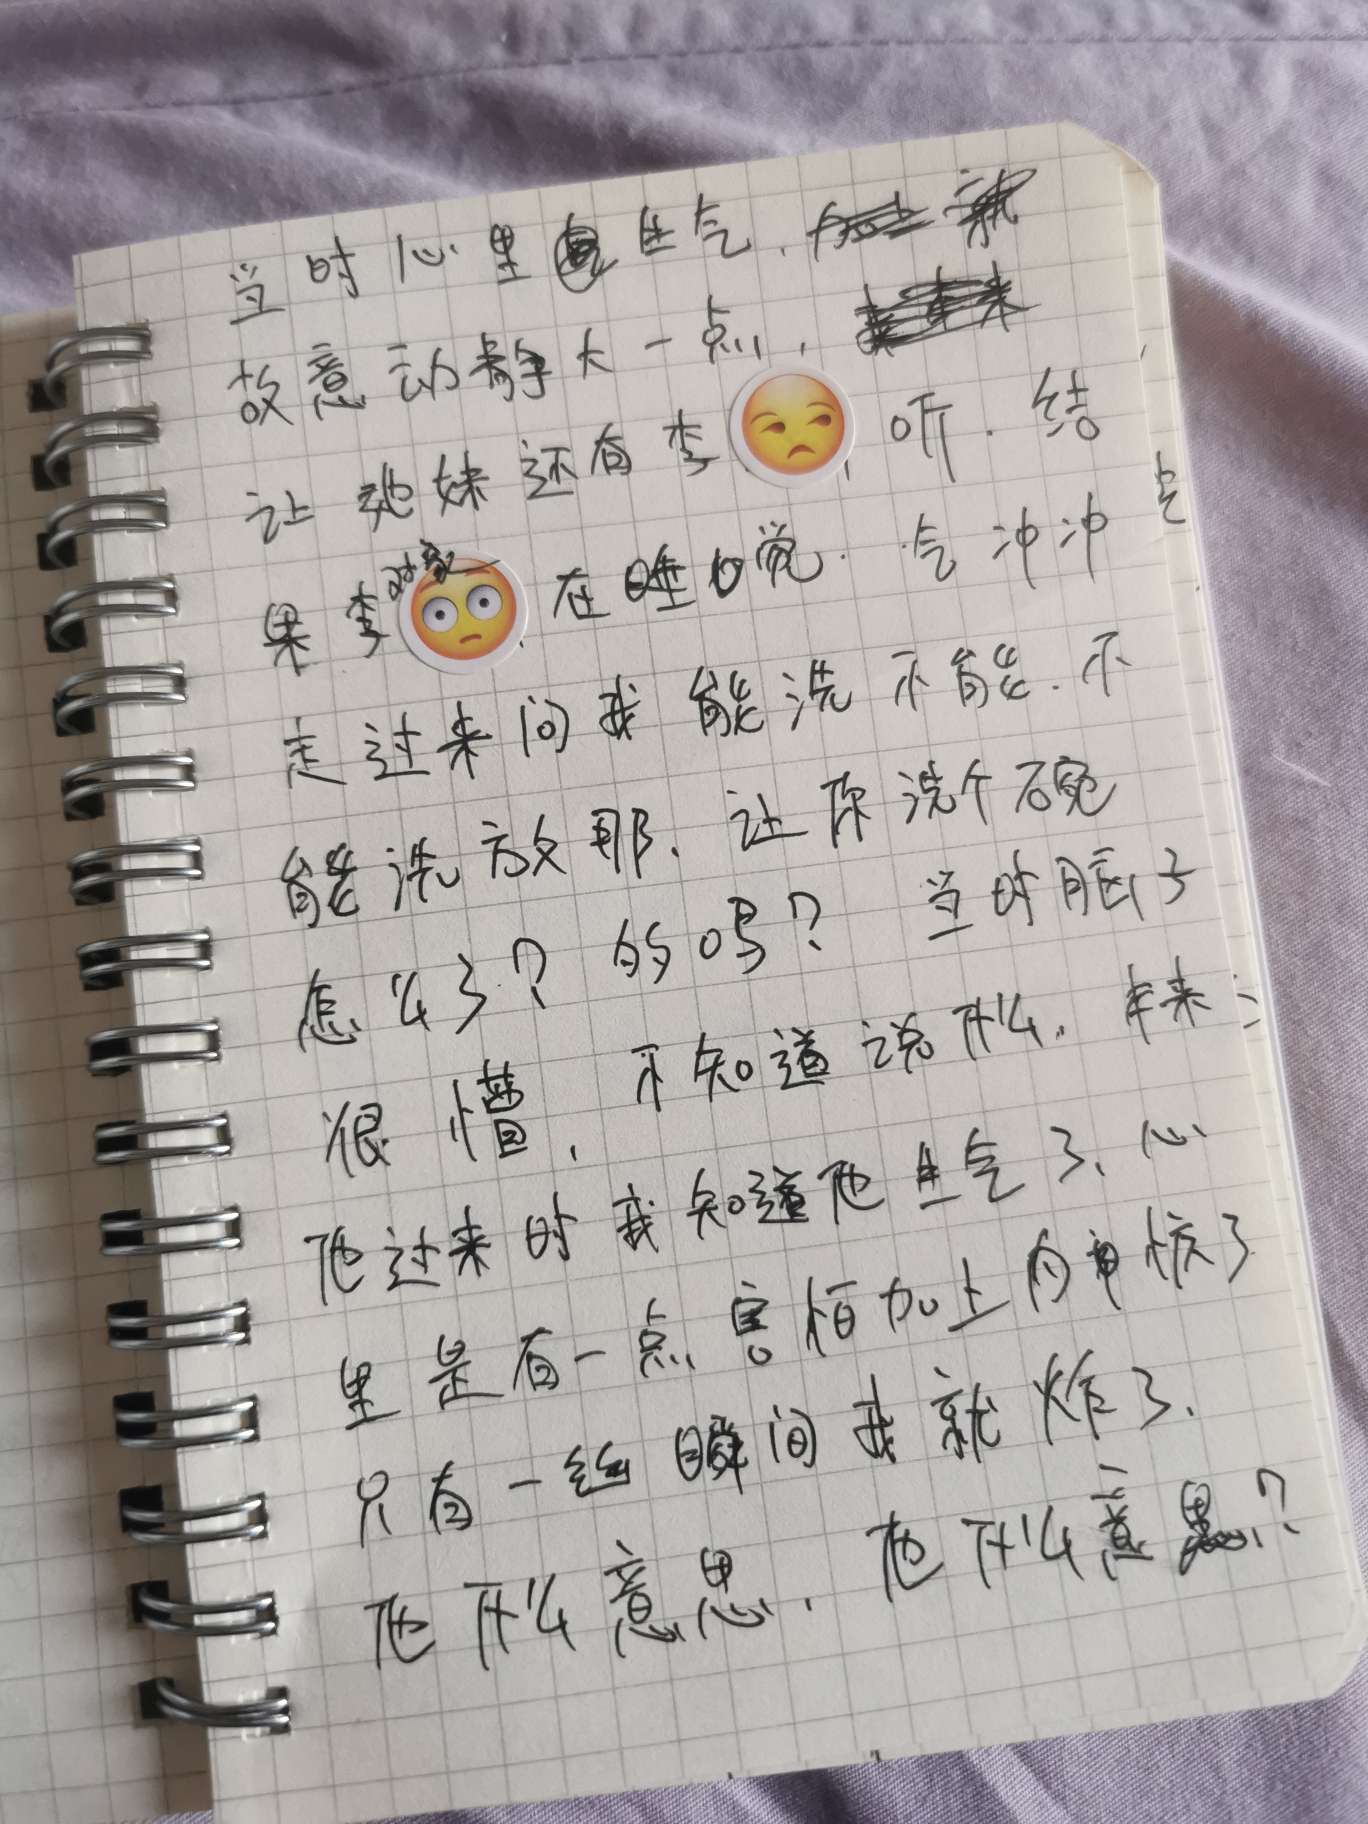 当时心里生气,就
故意动静大一点,
让她妹还有李 听.结
果李 在睡觉.气冲冲
走过来问我能洗不能.不
能洗放那.让你洗个碗
怎么了?的吗?当时脑子
很懵,不知道说什么.本来
他过来时我知道他生气了、心
里是有一点害怕加上内
只有一丝瞬间我就炸了.
他什么意思.他什么意思?